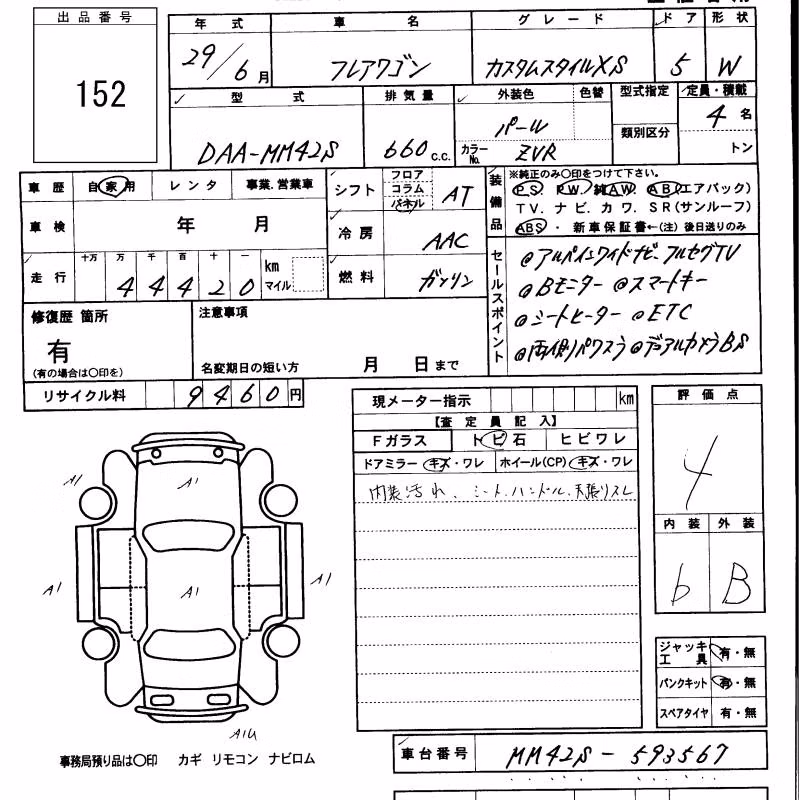 出品番号
152
年式 車名 グレード ドア 形状
29/6月 フレアワゴン カスタムスタイルXS 5 W
型式 排気量 外装色 色替 型式指定 定員・積載
DAA-MM42S 660 c.c. パール 類別区分 4名
カラーNo. ZVR トン
車歴 自家用 レンタ 事業.営業車
車検 年 月
走行 十万 万 千 百 十 一 km マイル
4 4 4 2 0
シフト フロア コラム パネル AT
冷房 AAC
燃料 ガソリン
装備品 ※純正のみ〇印をつけて下さい。
P.S P.W. 純AW. AB(エアバック)
TV. ナビ. カワ. SR(サンルーフ)
ABS ・ 新車保証書←(注) 後日送りのみ
セールスポイント
@アルパインワイドナビ・フルセグTV
@Bモニター @スマートキー
@シートヒーター @ETC
@両側パワスラ @デュアルカメラBS
修復歴 箇所
有
(有の場合は〇印を)
注意事項
名変期日の短い方 月 日まで
リサイクル料 9460円
現メーター指示 km
【査定員記入】
Fガラス トビ石 ヒビワレ
ドアミラー キズ・ワレ ホイール(CP) キズ・ワレ
内装汚れ、シート.ハンドル.天張りスレ
評価点
4
内装 外装
b B
ジャッキ工具 有・無
パンクキット 有・無
スペアタイヤ 有・無
A1
A1
A1
A1
A1
A1U
事務局預り品は〇印 カギ リモコン ナビロム
車台番号 MM42S-593567